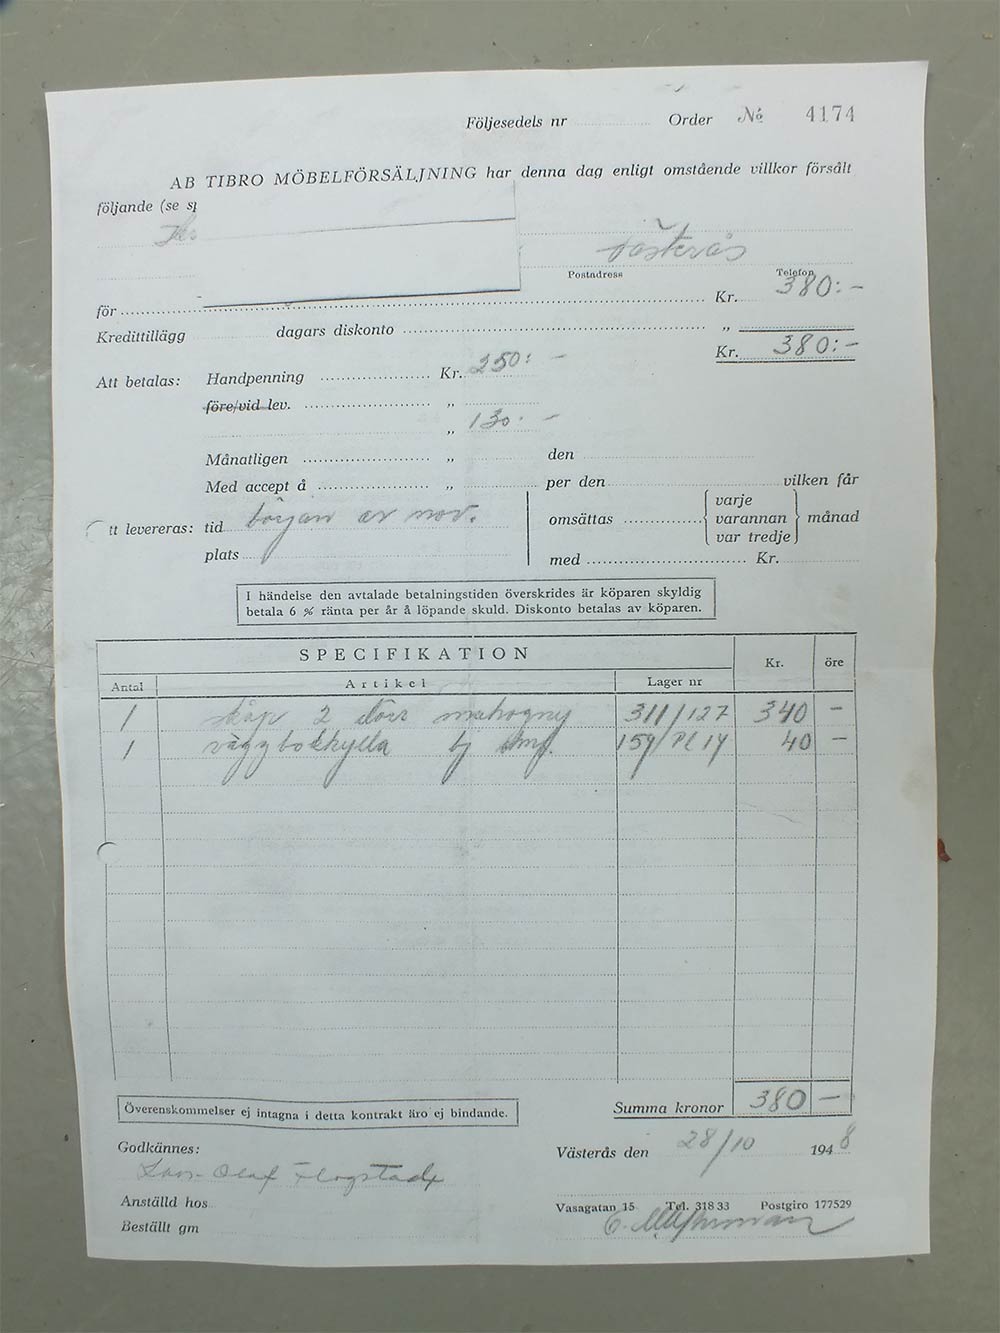 Följesedels nr Order No 4174
AB TIBRO MÖBELFÖRSÄLJNING har denna dag enligt omstående villkor försålt
följande (se
Västerås
Postadress Telefon
för Kr. 380:-
Kredittillägg dagars diskonto „
Kr. 380:-
Att betalas: Handpenning Kr. 250:-
före/vid lev. „
„ 130.-
Månatligen „ den
Med accept å „ per den vilken får
tt levereras: tid början av nov.
plats
omsättas varje varannan var tredje månad
med Kr.
I händelse den avtalade betalningstiden överskrides är köparen skyldig
betala 6 % ränta per år å löpande skuld. Diskonto betalas av köparen.
SPECIFIKATION Kr. öre
Antal Artikel Lager nr
1 skåp 2 dörr mahogny 311/127 340 -
1 väggbokhylla bj 159/Pl 14 40 -
Överenskommelser ej intagna i detta kontrakt äro ej bindande.
Summa kronor 380 -
Godkännes: Västerås den 28/10 1948
Lars-Olof
Anställd hos
Vasagatan 15 Tel. 318 33 Postgiro 177529
Beställt gm